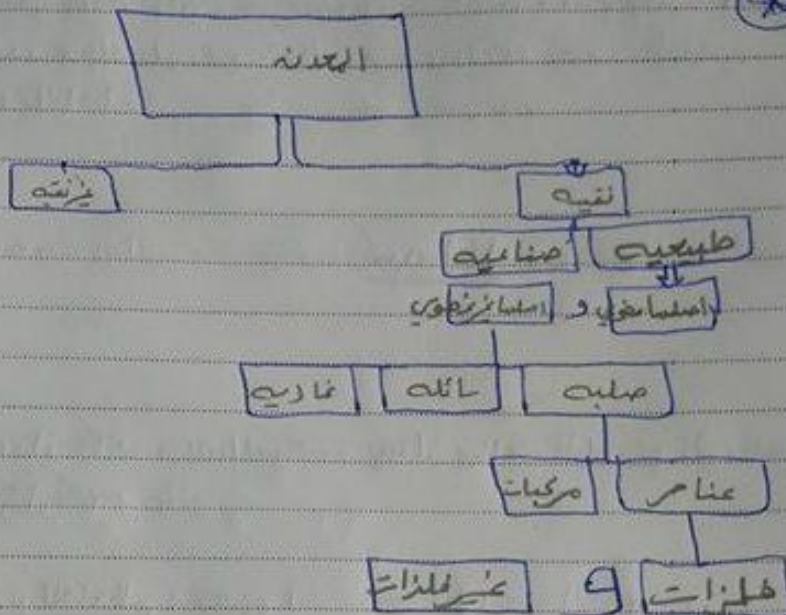 المعدنه
نقيه غير نقيه
طبيعيه صناعيه
اصلها عضوي و اصلها غير عضوي
صلبه سائله غازيه
عناصر مركبات
فلزات و غير فلزات